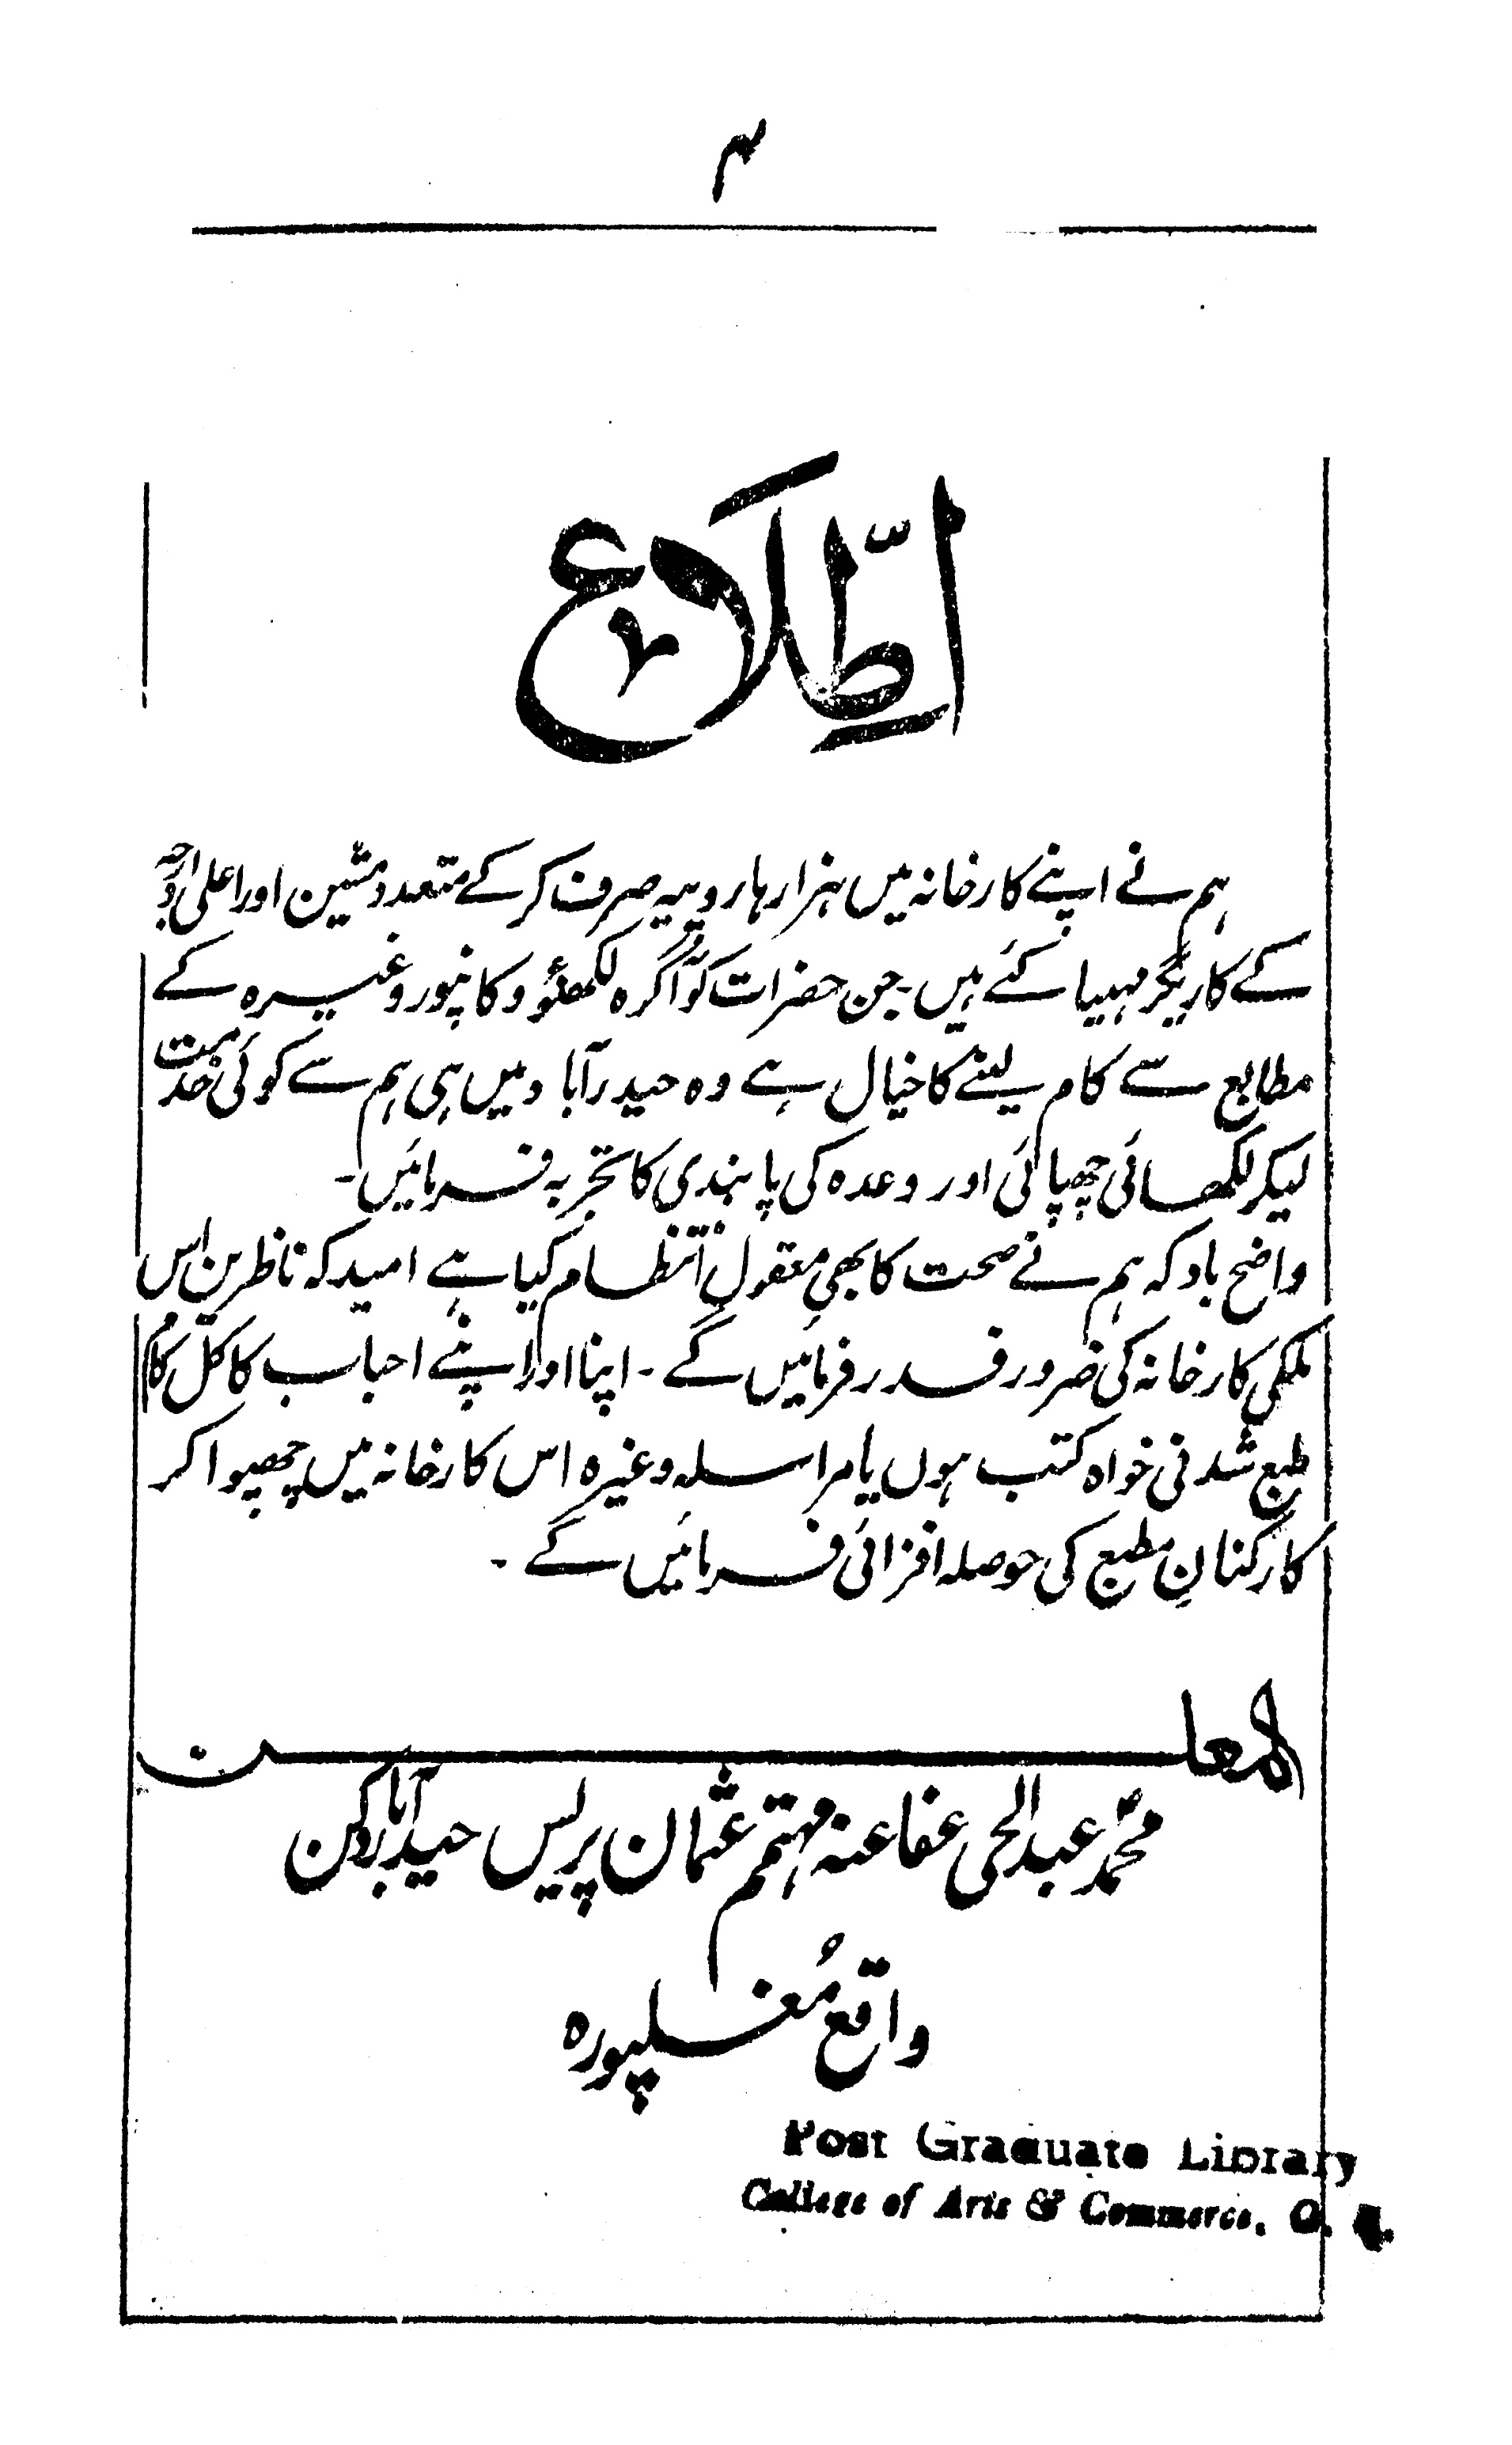 ۴
اطّلاع
ہم نے اپنے کارخانہ میں ہزارہا روپیہ صرف کرکے متعدد مشین اور اعلیٰ درجہ
کے کاریگر مہییا کئے ہیں - جن حضرات کو آگرہ لکھنؤ و کانپور وغیرہ کے
مطابع سے کام لینے کا خیال ہے وہ حیدرآباد میں ہی ہم سے کوئی خدمت
لیکر لکھائی چھپائی اور وعدہ کی پابندی کا تجربہ فرمائیں -
واضح باد کہ ہم نے صحت کا بھی معقول انتظام کیا ہے امید کہ ناظرین اس
ملکی کارخانہ کی ضرور قدر فرمائیں گے - اپنا اور اپنے احباب کا کل کام
طبع شدنی خواہ کتب ہوں یا مراسلہ وغیرہ اس کارخانہ میں چھپوا کر
کارکنانِ مطبع کی حوصلہ افزائی فرمائیں گے -
المعلن
محمد عبدالحی عفا عنہ مہتمم عثمان پریس حیدرآباد دکن
واقع مُغلپورہ
Post Graduate Library
College of Arts & Commerce, O. U.